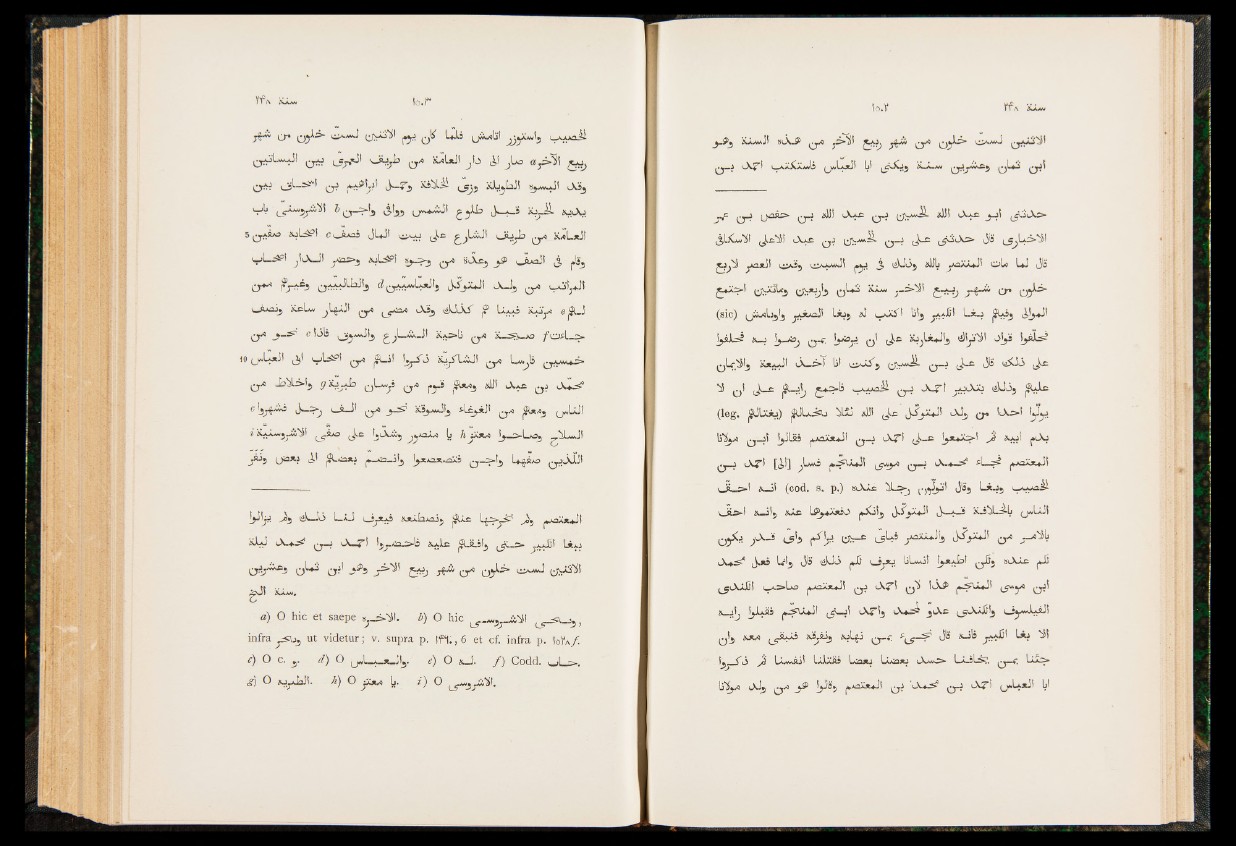 ١٥٠٢ سنة ٢٤٨
الاثنين لستّ خلون من شهر ربيع الآخر من هذه السنة وهو
ابن ثمان وعشرين سنة ويكنى ابا العبّاس فاستكتب احمد بن
حدثنى ابو عبد الله الحسين بن عبد الله بن حفص بن عمر
الاخبارى قال حدثنى على بن الحسين بن عبد الاعلى الاسكافى
قال لما مات المنتصر بالله وذلك فى يوم السبت وقت العصر لاربع
خلون من شهر ربيع الاخر سنة ثمان واربعين ومائتين اجتمع
الموالى وفيهم بغا الكبير وانا اكتب له وبغا الصغير واوتامش (sic)
فحلّفوا قواد الاتراك والمغاربة على ان يرضوا بمن رضوا به فحلفوا
على ذلك قال على بن الحسين وكنت انا آخذ البيعة والايمان
عليهم وذلك بتدبير احمد بن الخصيب فاجمع رايهم على ان لا
يولّوا احدا من ولد المتوكّل على الله لئلّا (leg. يغتالهم)
بدم ابيه ثم اجتمعوا على احمد بن المعتصم فقالوا ابن مولانا
المعتصم فجاء محمد بن موسى المنجّم فسار [الى] احمد بن
الخصيب وبغا وقال اتولّون رجلا عنده (cod. s. p.) انه احقّ
الناس بالخلافة قبل المتوكّل وانكم دفعتموها عنه وانه احقّ
بالامر من المتوكّل والمنتصر فباىّ عين يراكم واىّ قدر يكون
لكم عنده ولكن اطيعوا انسانا يعرف لكم ذلك قال وانما فعل محمد
ابن موسى المنجّم هذا لان احمد بن المعتصم صاحب الكندى
الفيلسوف والكندى عدوّ محمد واحمد ابنى المنجّم فقبلوا رايه
الا بغا الكبير فانه قال نجىء بمن نهابه ونفرقه فنبقى معه وان
جئنا بمن يخافنا حسد بعضنا بعضا فقتلنا انفسنا ثم ذكروا
ابا العباس احمد بن محمد بن المعتصم وقالوا هو من ولد مولانا
سنة ٢٤٨ ١٥٠٣
الخصيب واستوزر اتامش فلمّا كان يوم الاثنين لستّ خلون من شهر
ربيع الآخر a صار الى دار العامّة من طريق العمرى بين البساتين
وقد البسوه الطويلة وزىّ الخلافة وحمل ابراهيم بن اسحاق بين
يديه الحربة قبل طلوع الشمس ووافى واجن b الاشروسنىّ باب
العامّة من طريق الشارع على بيت المال فصفّ c اصحابه صفّين 5
وقام فى الصفّ هو وعدّة من وجوه اصحابه وحضر الدار اصحاب
المراتب من ولد المتوكّل والعبّاسيّين d والطالبيّين وغيرهم ممن
لهم e مرتبة فبينا هم كذلك وقد مضى من النهار ساعة ونصف
جاءت f صيحة من ناحية الشارع والسوق فاذا e نحو من
خمسين فارسا من الشاكريّة ذكروا انهم من اصحاب ابى العبّاس 10
محمّد بن عبد الله ومعهم قوم من فرسان طبريّة g واخلاط من
الناس ومعهم من الغوغاء والسوقة نحو من الف رجل فشهروا e
السلاح وصاحوا معتزّ h يا منصور وشدّوا على صفّى الاشروسنيّة i
اللذين صفّهما واجن فتضعضعوا وانضمّ بعضهم الى بعض ونفر
المعتصم ولم نخرجها عنهم ونصطنعه فيعرف لنا ذلك ولم يزالوا
ببغا الكبير حتى وافقهم عليه فاحضروا احمد بن محمد ليلة
الاثنين لست خلون من شهر ربيع الاخر وهو ابن ثمان وعشرين
سنة الخ.
a) O hic et saepe الاخره. b) O hic ,
infra ut videtur; v. supra p. ١٤٦٠, 6 et cf. infra p. ١٥٢٨ f.
c) O c. و. d) O والعباس. e) O له. f) Codd. جاب.
g) O الطبرية. h) O يا معتز. i) O الاشروسى.